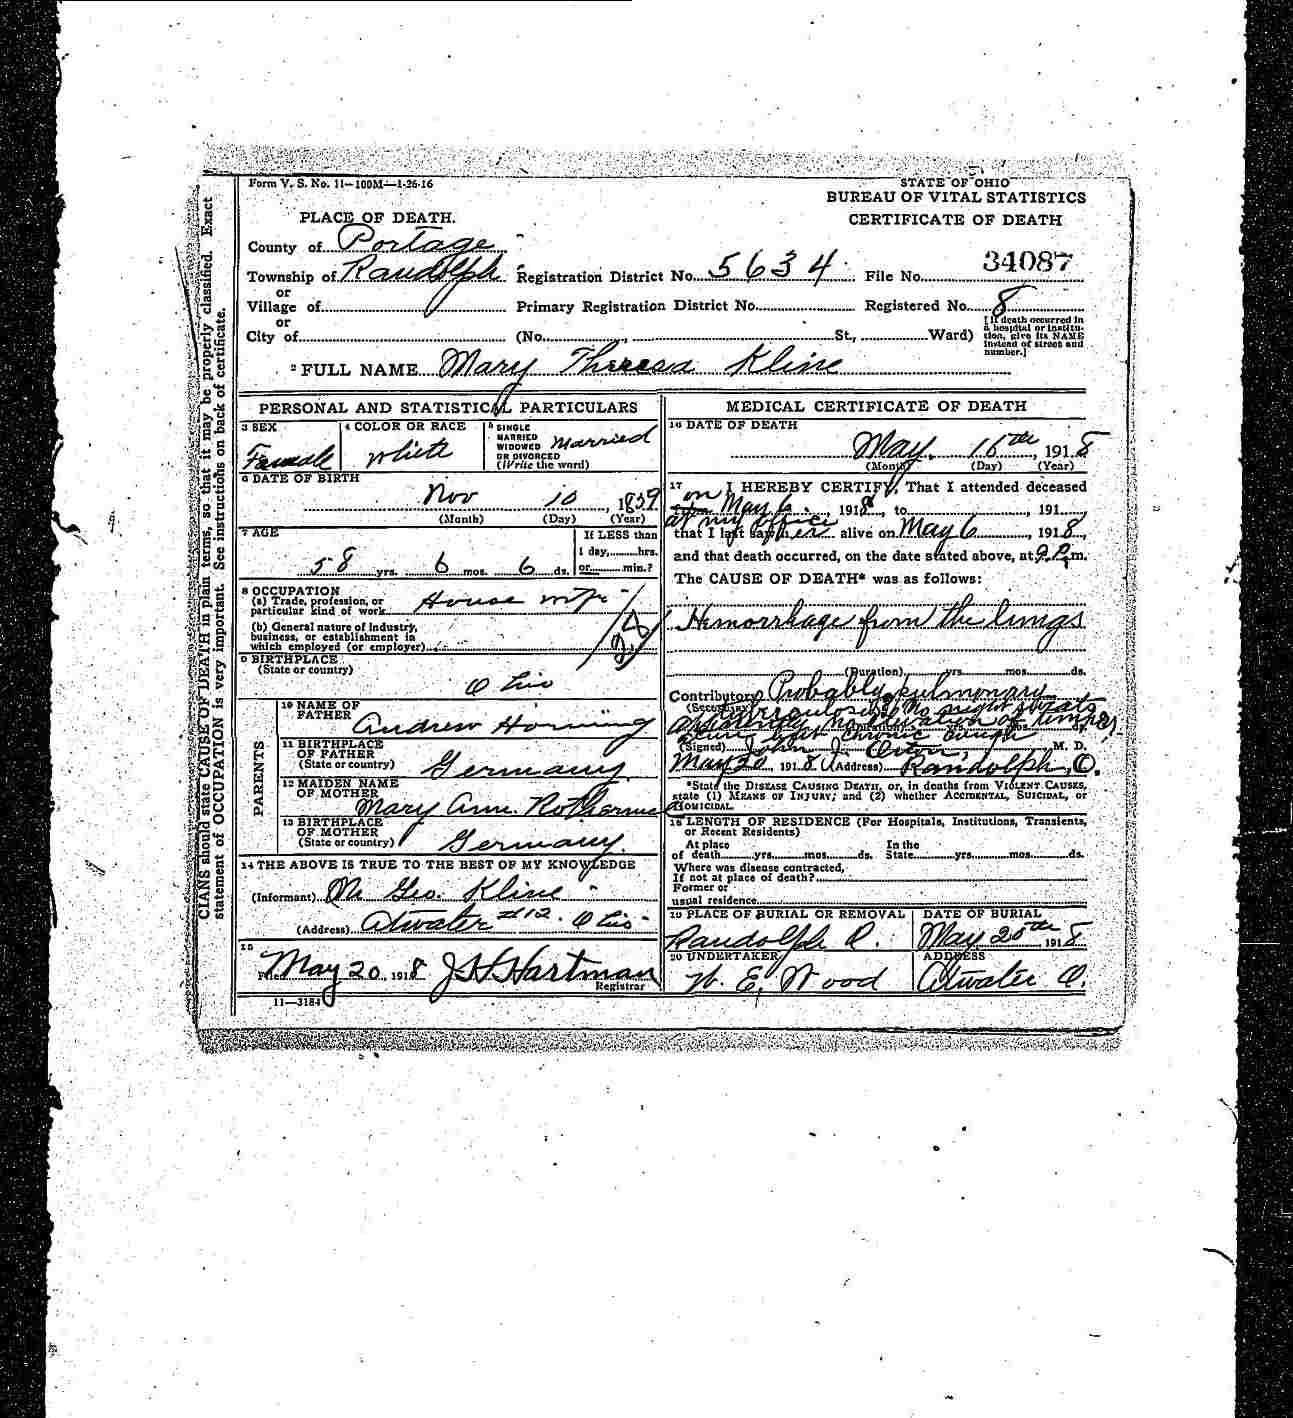 Form V. S. No. 11—100M—1-26-16
STATE OF OHIO
BUREAU OF VITAL STATISTICS
CERTIFICATE OF DEATH
PLACE OF DEATH.
County of Portage
Township of Randolph Registration District No. 5634 File No. 34087
or
Village of Primary Registration District No. Registered No. 8
or
City of (No. , St., Ward)
[If death occurred in
a hospital or institu-
tion, give its NAME
instead of street and
number.]
2 FULL NAME Mary Theresa Kline
PERSONAL AND STATISTICAL PARTICULARS
3 SEX
Female
4 COLOR OR RACE
White
5 SINGLE
MARRIED
WIDOWED
OR DIVORCED
(Write the word)
Married
6 DATE OF BIRTH
Nov 10, 1859
(Month) (Day) (Year)
7 AGE
58 yrs. 6 mos. 6 ds.
If LESS than
1 day, hrs.
or min.?
8 OCCUPATION
(a) Trade, profession, or
particular kind of work House wife
(b) General nature of industry,
business, or establishment in
which employed (or employer)
9 BIRTHPLACE
(State or country)
Ohio
PARENTS
10 NAME OF
FATHER Andrew Horning
11 BIRTHPLACE
OF FATHER
(State or country) Germany
12 MAIDEN NAME
OF MOTHER
Mary Ann Rothermel
13 BIRTHPLACE
OF MOTHER
(State or country) Germany.
14 THE ABOVE IS TRUE TO THE BEST OF MY KNOWLEDGE
(Informant) Mr Geo. Kline
(Address) Atwater #12. Ohio
15
Filed May 20 1918 J H Hartman
Registrar
11—3184
MEDICAL CERTIFICATE OF DEATH
16 DATE OF DEATH
May. 16th, 1918
(Month) (Day) (Year)
17 I HEREBY CERTIFY, That I attended deceased
on
from May 6, 1918, to , 191
at my office
that I last saw her alive on May 6, 1918,
and that death occurred, on the date stated above, at 9 P. m.
The CAUSE OF DEATH* was as follows:
Hemorrhage from the lungs
(Duration) yrs. mos. ds.
Contributory Probably pulmonary
(Secondary) tuberculosis No night sweats
apparently no elevation of temper
chronic cough
(Signed) John J. M. D.
May 20, 1918 (Address) Randolph, O.
*State the DISEASE CAUSING DEATH, or, in deaths from VIOLENT CAUSES,
state (1) MEANS OF INJURY; and (2) whether ACCIDENTAL, SUICIDAL, or
HOMICIDAL.
18 LENGTH OF RESIDENCE (For Hospitals, Institutions, Transients,
or Recent Residents)
At place In the
of death yrs. mos. ds. State yrs. mos. ds.
Where was disease contracted,
If not at place of death?
Former or
usual residence
19 PLACE OF BURIAL OR REMOVAL
Randolph O.
DATE OF BURIAL
May 20th 1918
20 UNDERTAKER
W. E. Wood
ADDRESS
Atwater O.
CIANS should state CAUSE OF DEATH in plain terms, so that it may be properly classified. Exact
statement of OCCUPATION is very important. See instructions on back of certificate.